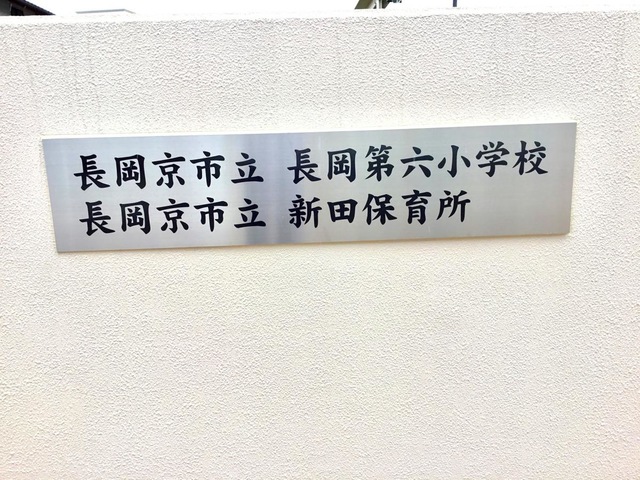 長岡京市立 長岡第六小学校
長岡京市立 新田保育所